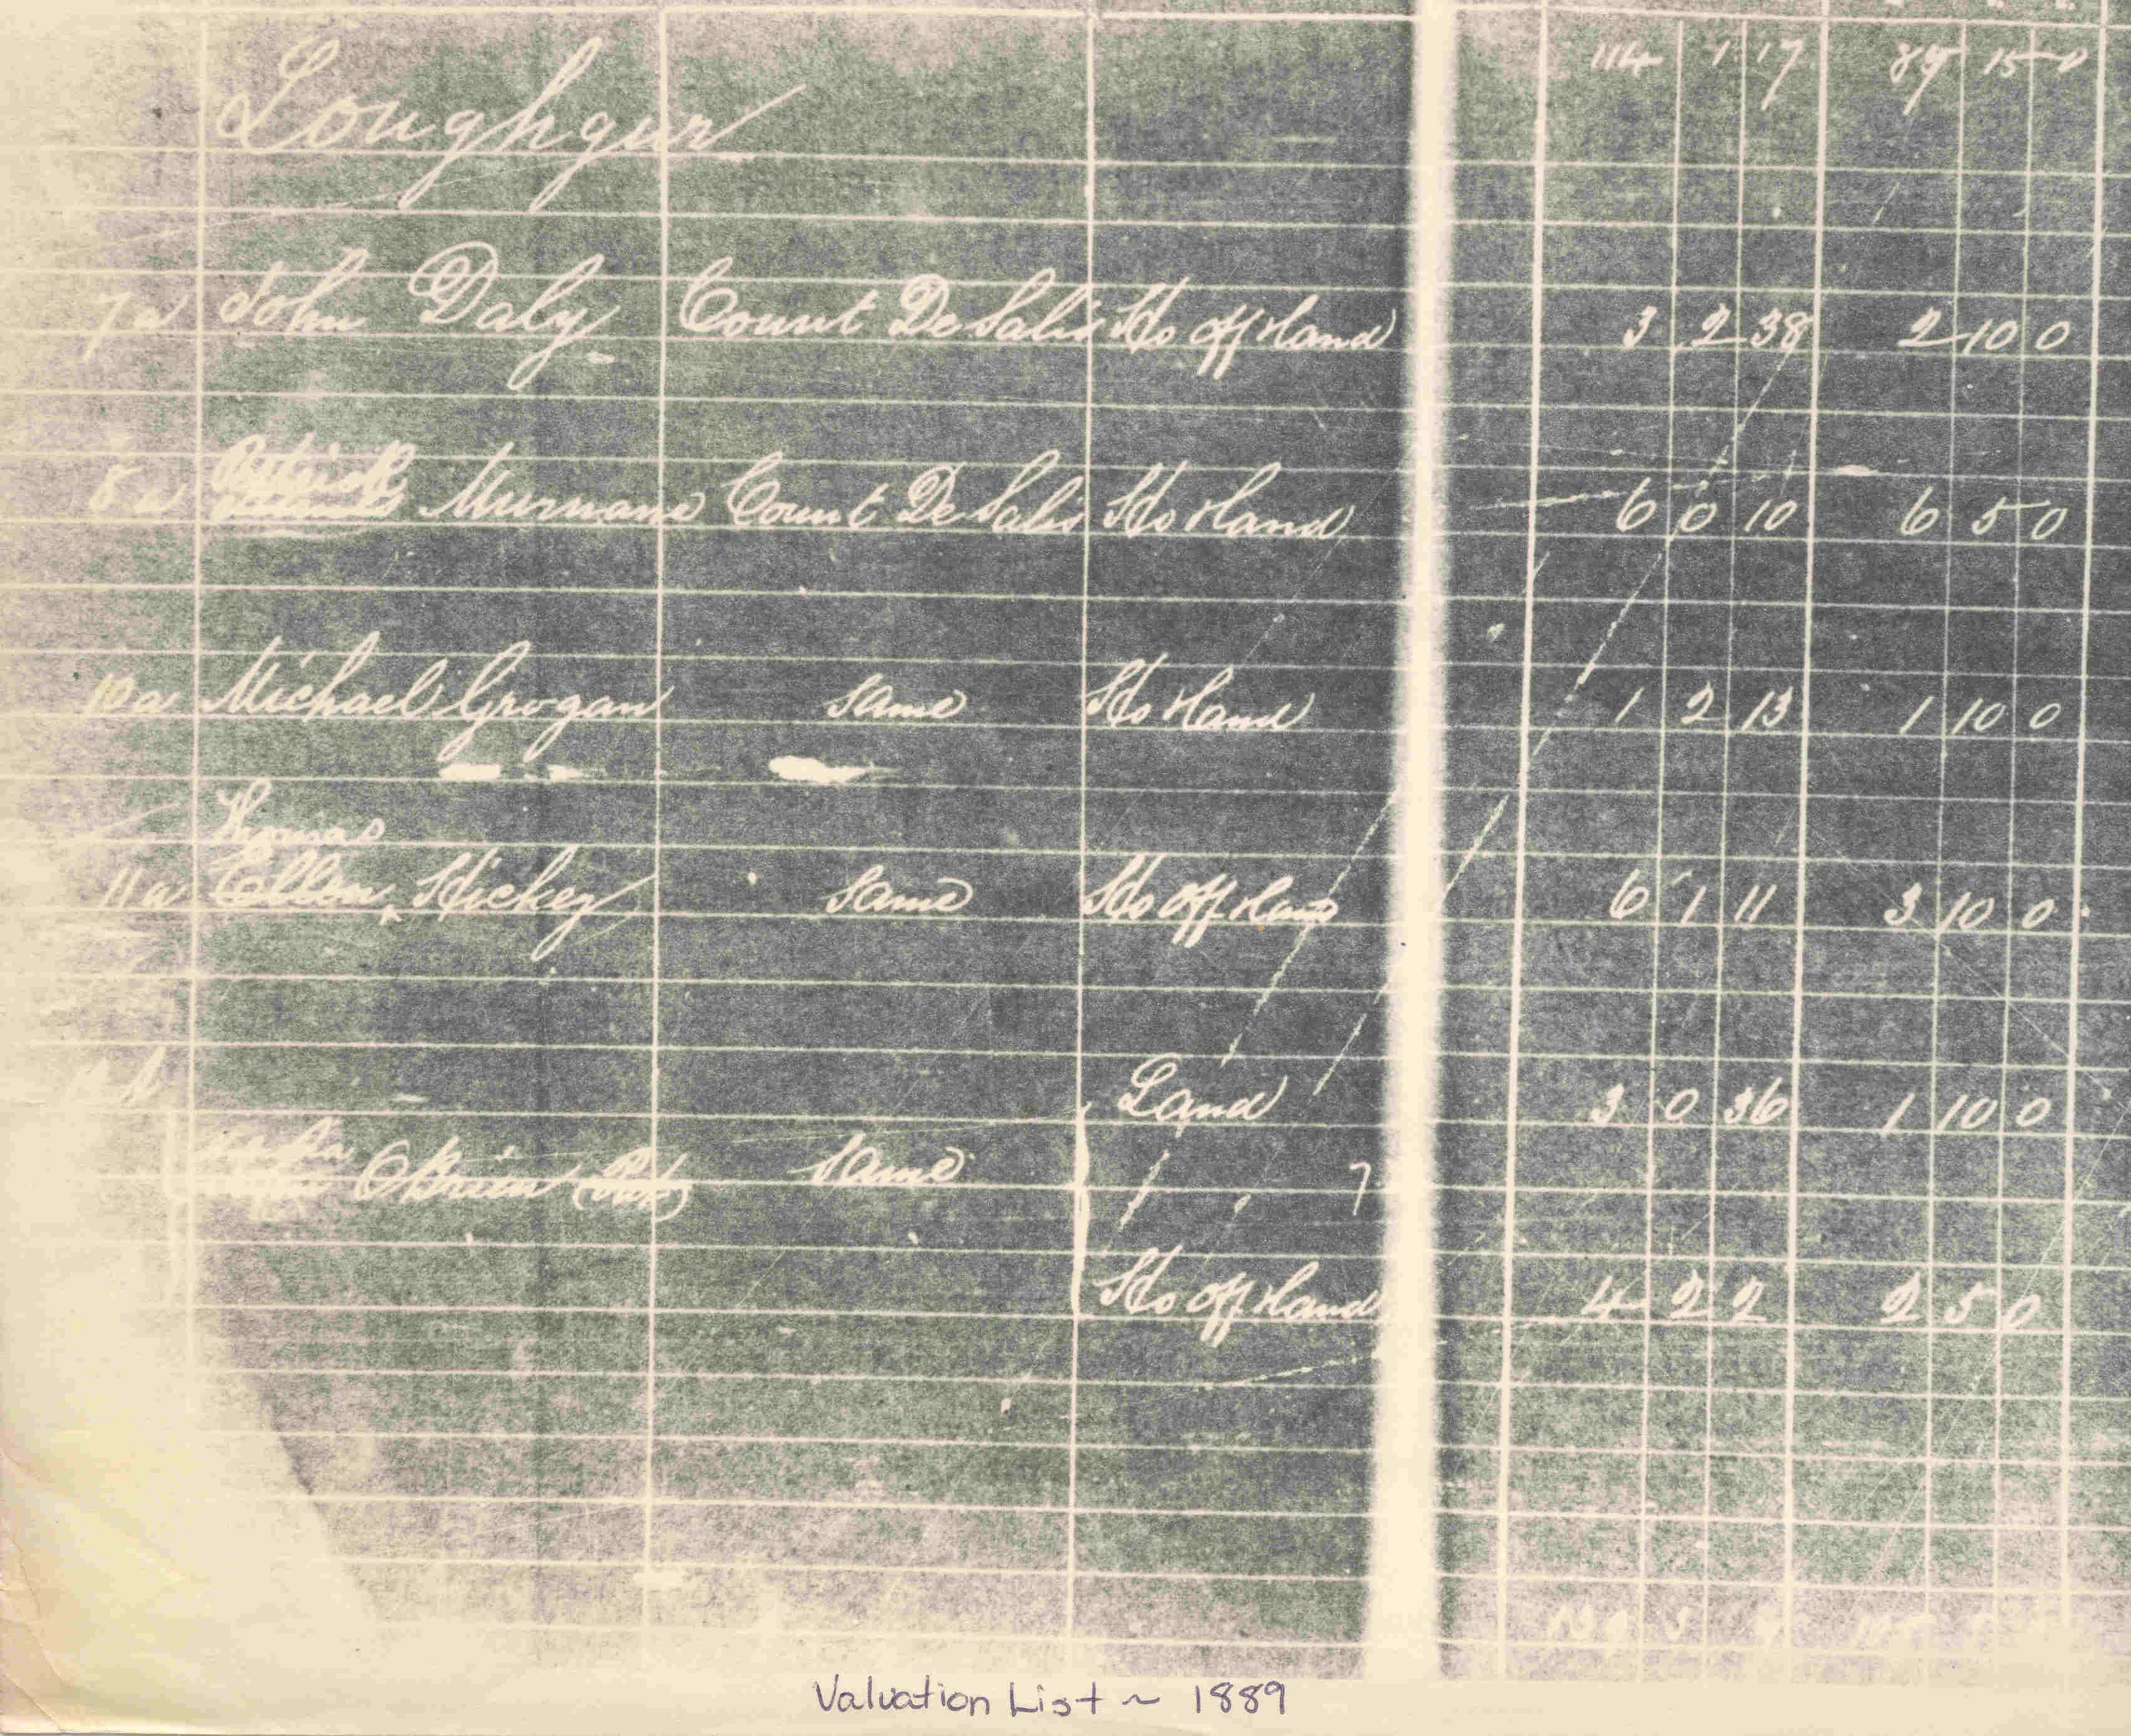 114 1 17 89 15 0
Loughgur
7 a John Daly Count De Salis Ho Off Land 3 2 38 2 10 0
Patrick
8 a Murnane Count De Salis Ho Land 6 0 10 6 5 0
10 a Michael Grogan Same Ho Land 1 2 13 1 10 0
Thomas
11 a Ellen Hickey Same Ho Off Land 6 1 11 3 10 0
Land 3 0 36 1 10 0
OBrien (Pat) Same 7
Ho Off Land 4 2 2 2 5 0
Valuation List ~ 1889